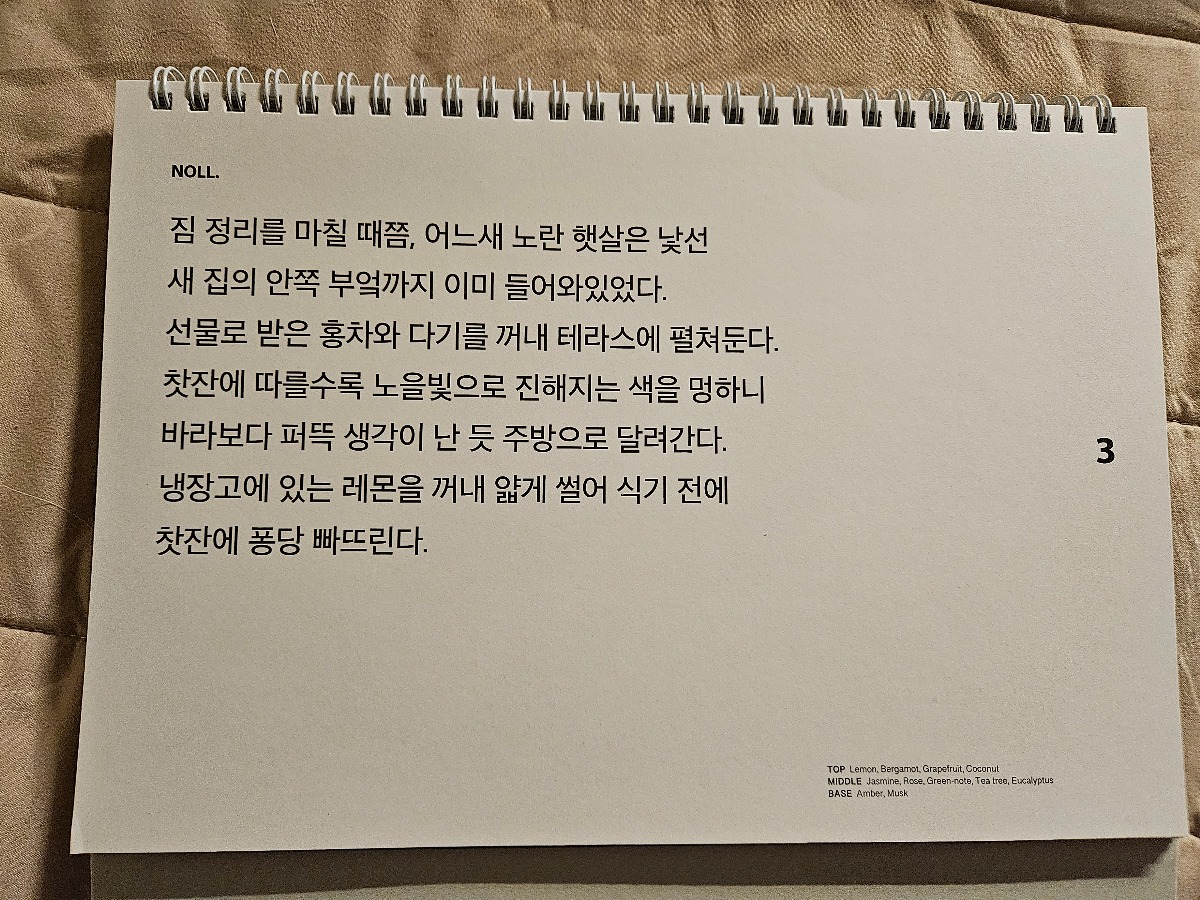 NOLL.
짐 정리를 마칠 때쯤, 어느새 노란 햇살은 낯선
새 집의 안쪽 부엌까지 이미 들어와있었다.
선물로 받은 홍차와 다기를 꺼내 테라스에 펼쳐둔다.
찻잔에 따를수록 노을빛으로 진해지는 색을 멍하니
바라보다 퍼뜩 생각이 난 듯 주방으로 달려간다.
냉장고에 있는 레몬을 꺼내 얇게 썰어 식기 전에
찻잔에 퐁당 빠뜨린다.
3
TOP Lemon, Bergamot, Grapefruit, Coconut
MIDDLE Jasmine, Rose, Green-note, Tea tree, Eucalyptus
BASE Amber, Musk